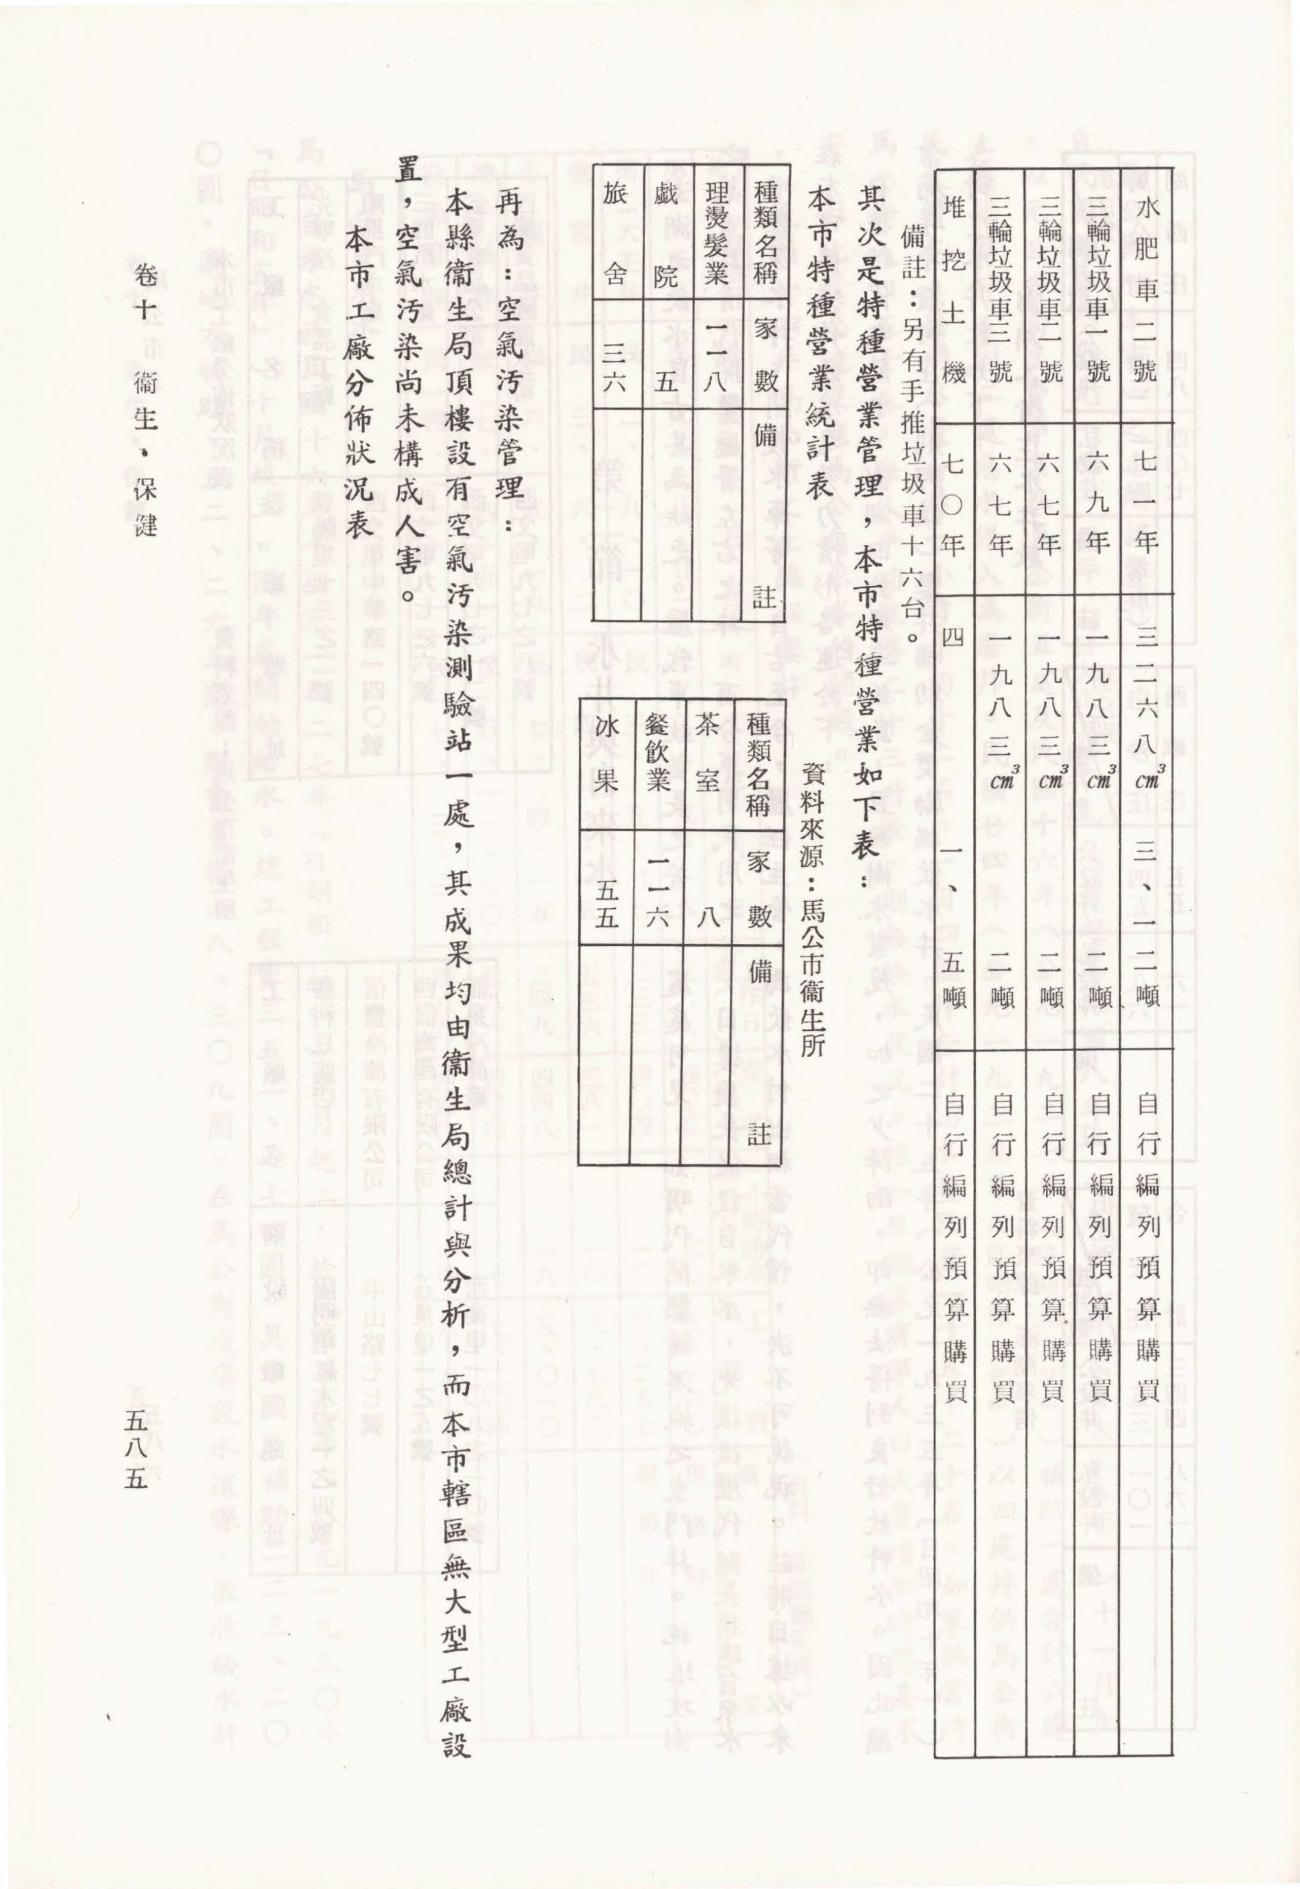 水肥車二號　七一年　三二六八cm³　三、一二噸　自行編列預算購買
三輪垃圾車一號　六九年　一九八三cm³　二噸　自行編列預算購買
三輪垃圾車二號　六七年　一九八三cm³　二噸　自行編列預算購買
三輪垃圾車三號　六七年　一九八三cm³　二噸　自行編列預算購買
堆挖土機　七〇年　四　一、五噸　自行編列預算購買
備註：另有手推垃圾車十六台。
其次是特種營業管理，本市特種營業如下表：
本市特種營業統計表　資料來源：馬公市衞生所
種類名稱　家數　備註
理燙髮業　一一八
戲院　五
旅舍　三六
種類名稱　家數　備註
茶室　八
餐飲業　一一六
冰果　五五
再為：空氣汚染管理：
本縣衞生局頂樓設有空氣汚染測驗站一處，其成果均由衞生局總計與分析，而本市轄區無大型工廠設
置，空氣汚染尚未構成人害。
本市工廠分佈狀況表
卷十　衞生、保健
五八五